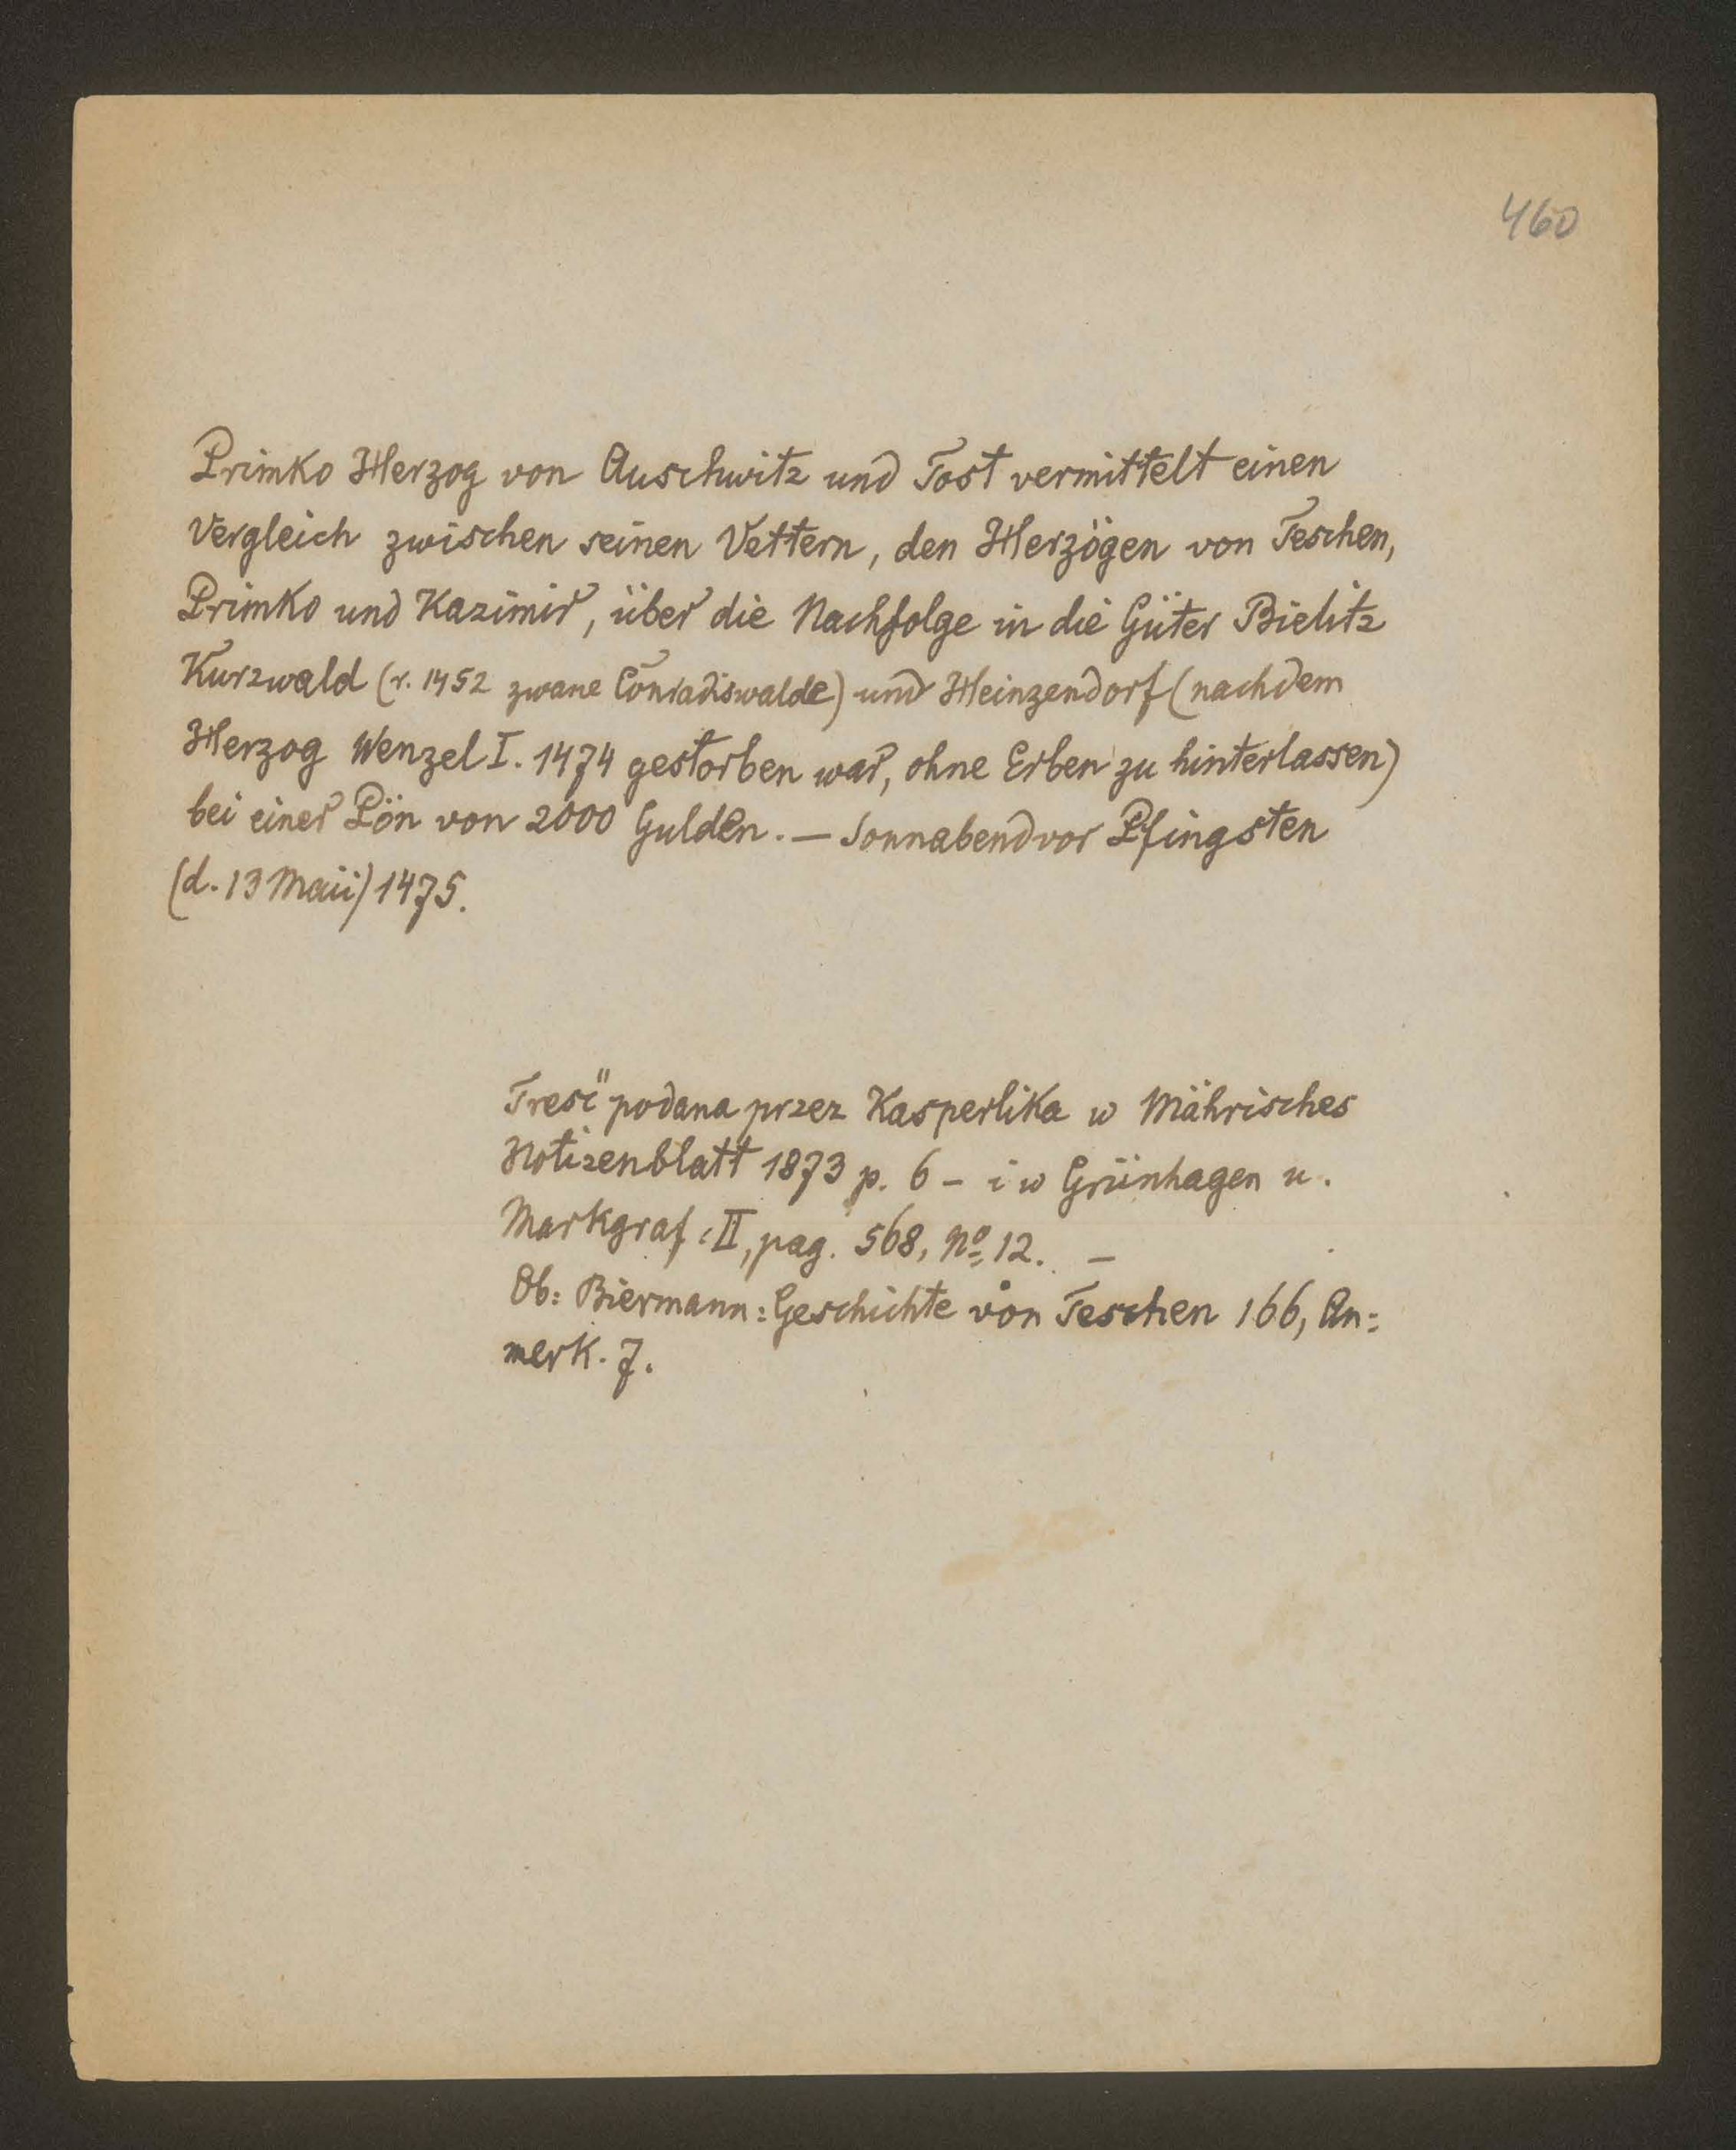 460
Primko Herzog von Auschwitz und Tost vermittelt einen
Vergleich zwischen seinen Vettern, den Herzögen von Teschen,
Primko und Kazimir, über die Nachfolge in die Güter Bielitz
Kurzwald (r. 1452 zwane Conradiswalde) und Heinzendorf (nachdem
Herzog Wenzel I. 1474 gestorben war, ohne Erben zu hinterlassen)
bei einer Pön von 2000 Gulden. — Sonnabend vor Pfingsten
(d. 13 Maii) 1475.
Treść podana przez Kasperlika w Mährisches
Notizenblatt 1873 p. 6 - i w Grünhagen u.
Markgraf II, pag. 568, No 12. -
Ob: Biermann: Geschichte von Teschen 166, An=
merk. 7.